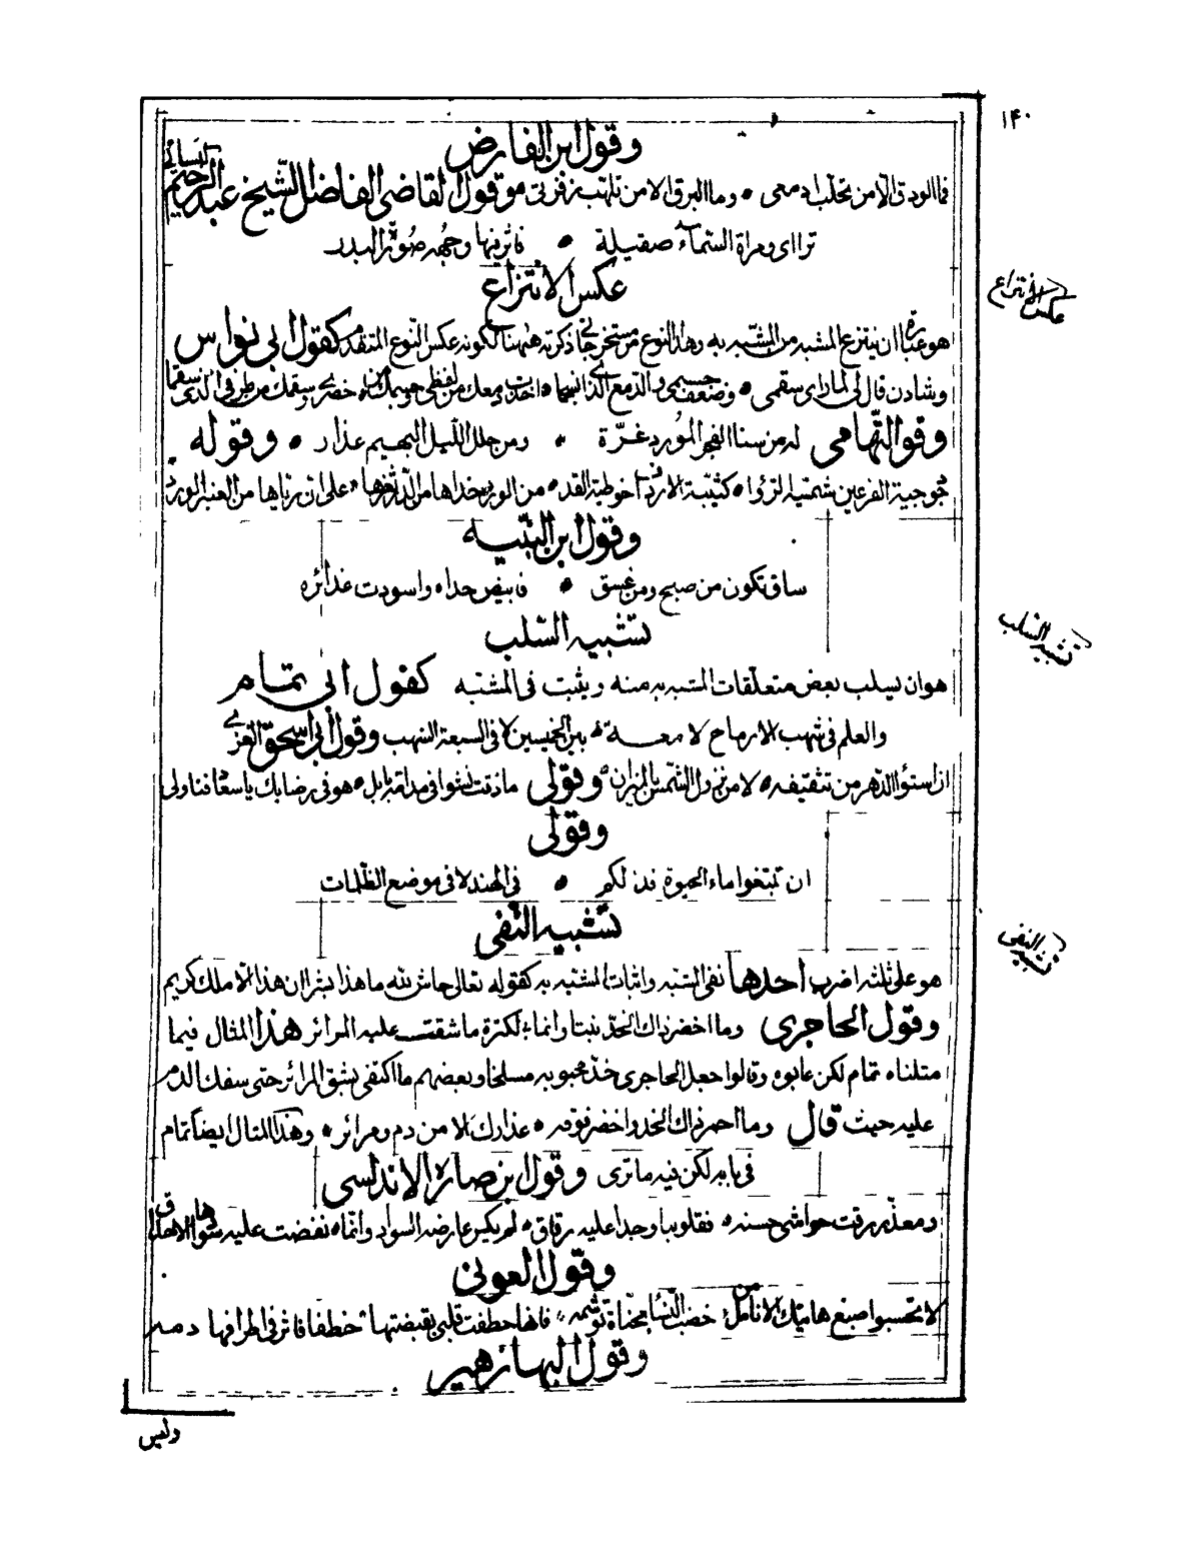 ١٤٠
وقول ابن الفارض
فما الودق الا من تحلب ادمعي • وما البرق الا من تلهب زفرتي وقول القاضي الفاضل الشيخ عبد الرحيم
تراأى ومرآة السماء صقيلة • فاثر فيها وجهه صورة البدر
عكس الانتزاع
عكس الانتزاع
هو عبارة ان ينتزع المشبه من المشبه به وهذا النوع من مستخرجاتي ذكرته ههنا لكونه عكس النوع المتقدم كقول ابي نواس
وشادن قال لي لما راى سقمي • وضعف جسمي والدمع الذي انسجما • اخذت دمعك من لفظي وجسمك من • خصري وسقمك من طرفي الذي سقما
وقول التهامي له من سنا الفجر المورد غرة • ومن حلل الليل البهيم عذار • وقوله
من الورد خداها من الدر ثغرها • على ان رياها من العنبر الورد
وقول ابن النبيه
ساق تكون من صبح ومن غسق • فابيض خداه واسودت غدائره
تشبيه السلب
تشبيه السلب
هو ان يسلب بعض متعلقات المشبه به منه ويثبت في المشبه كقول ابي تمام
والعلم في شهب الارماح لامعة • بين الخميسين لا في السبعة الشهب وقول ابي اسحق الغزي
ان استواء الدهر من تثقيفه • لا من نزول الشمس بالميزان وقولي ما ذقت نشوا في مدامة بابل • هو في رضابك يا سعاد فناولي
وقولي
ان تبتغوا ماء الحيوة فذلكم • في الهند لا في موضع الظلمات
تشبيه النفي
تشبيه النفي
هو على ثلثة اضرب احدها نفي المشبه واثبات المشبه به كقوله تعالى حاش لله ما هذا بشرا ان هذا الا ملك كريم
وقول الحاجري وما اخضر ذاك الخد نبتا وانما • لكثرة ما شقت عليه المرائر هذا المثال فيما
مثلناه تمام لكن عابوه وقالوا جعل الحاجري خد محبوبه مسلخا وبعضهم ما اكتفى بشق المرائر حتى سفك الدم
عليه حيث قال وما احمر ذاك الخد واخضر فوقه • عذارك الا من دم ومرائر • وهذا المثال ايضا تمام
في بابه لكن فيه ما ترى وقول ابن صارة الاندلسي
ومعذر رقت حواشي حسنه • فقلوبنا وجدا عليه رقاق • لم يكس عارضه السواد وانما • نفضت عليه سوادها الاحداق
وقول العوني
لا تحسبوا صبغ هاتيك الانامل من خضب
فانها خطفت قلبي بقبضتها • خطفا فاثر في اطرافها دمه
وقول البهاء زهير
وليس